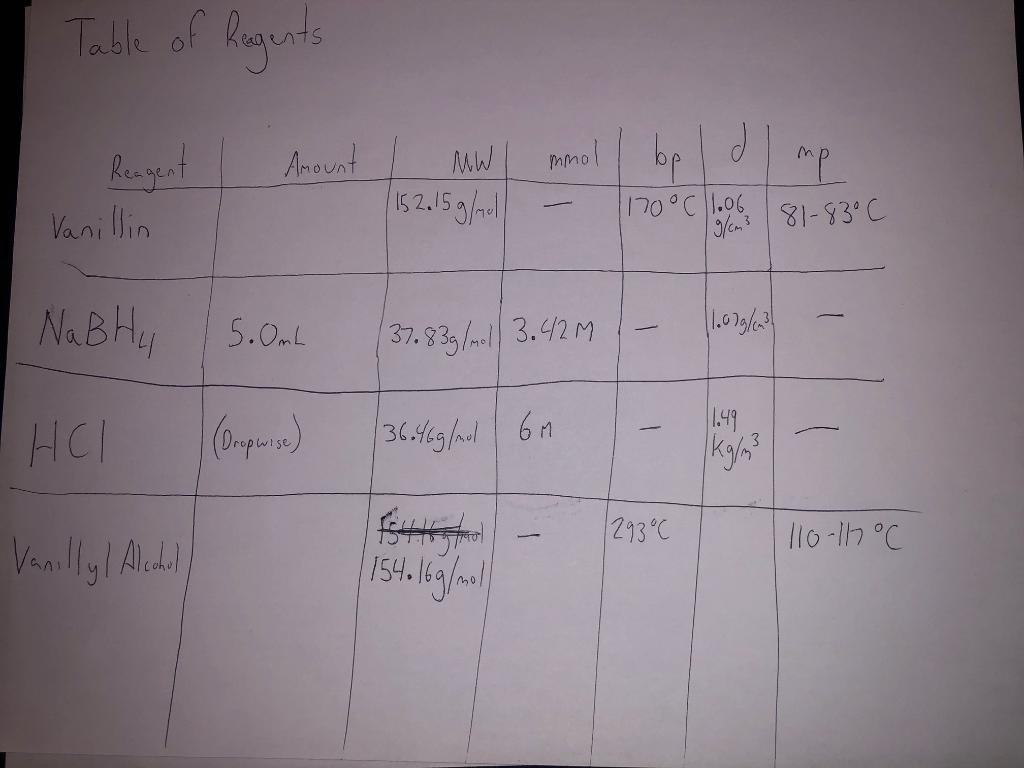 Table of Reagents
Reagent Amount MW mmol bp d mp
Vanillin 152.15g/mol — 170°C 1.06 g/cm³ 81-83°C
NaBH4 5.0mL 37.83g/mol 3.42M — 1.07g/cm³ —
HCl (Dropwise) 36.46g/mol 6M — 1.49 Kg/m³ —
154.16g/mol
Vanillyl Alcohol 154.16g/mol — 293°C 110-117°C